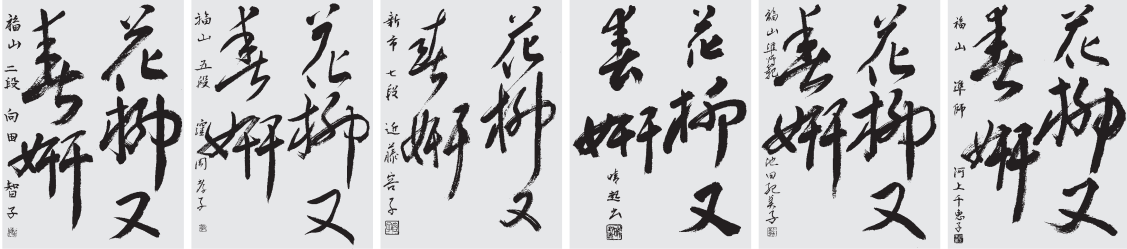 花柳又
春妍
福山 二段 向田 智子
花柳又
春妍
福山 五段 子
花柳又
春妍
新市 七段 近藤 子
花柳又
春妍
花柳又
春妍
福山 準師範 池田 子
花柳又
春妍
福山 準師 河上千恵子